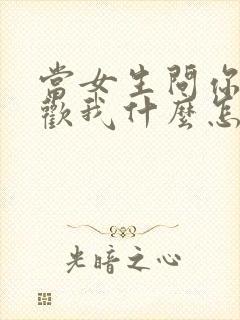 當女生問你
歡我什麼怎
光暗之心